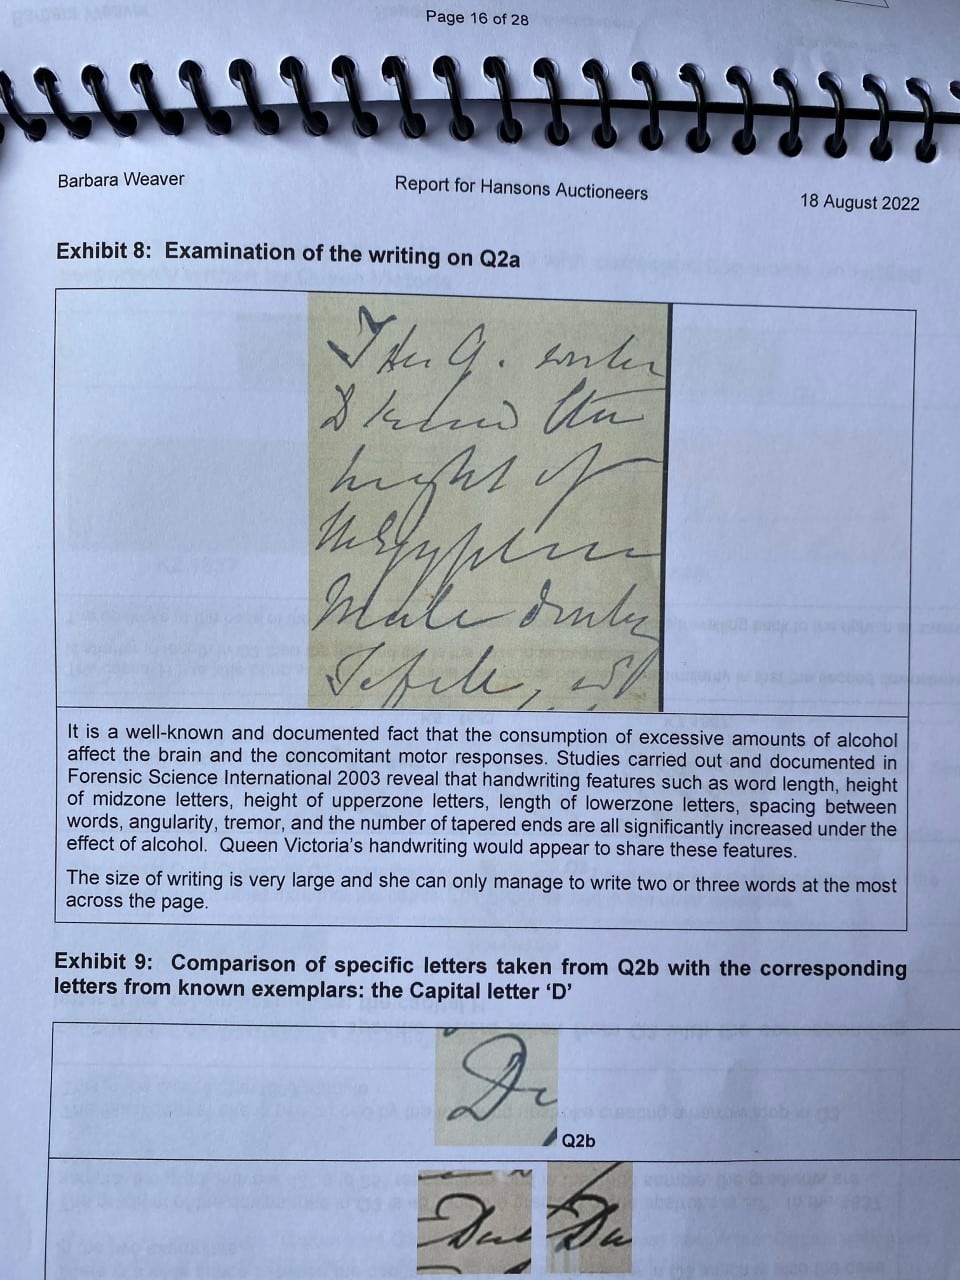 Page 16 of 28
Barbara Weaver
Report for Hansons Auctioneers
18 August 2022
Exhibit 8:  Examination of the writing on Q2a
The Q.
height of
Male
It is a well-known and documented fact that the consumption of excessive amounts of alcohol
affect the brain and the concomitant motor responses. Studies carried out and documented in
Forensic Science International 2003 reveal that handwriting features such as word length, height
of midzone letters, height of upperzone letters, length of lowerzone letters, spacing between
words, angularity, tremor, and the number of tapered ends are all significantly increased under the
effect of alcohol.  Queen Victoria's handwriting would appear to share these features.
The size of writing is very large and she can only manage to write two or three words at the most
across the page.
Exhibit 9:  Comparison of specific letters taken from Q2b with the corresponding
letters from known exemplars: the Capital letter ‘D’
Q2b